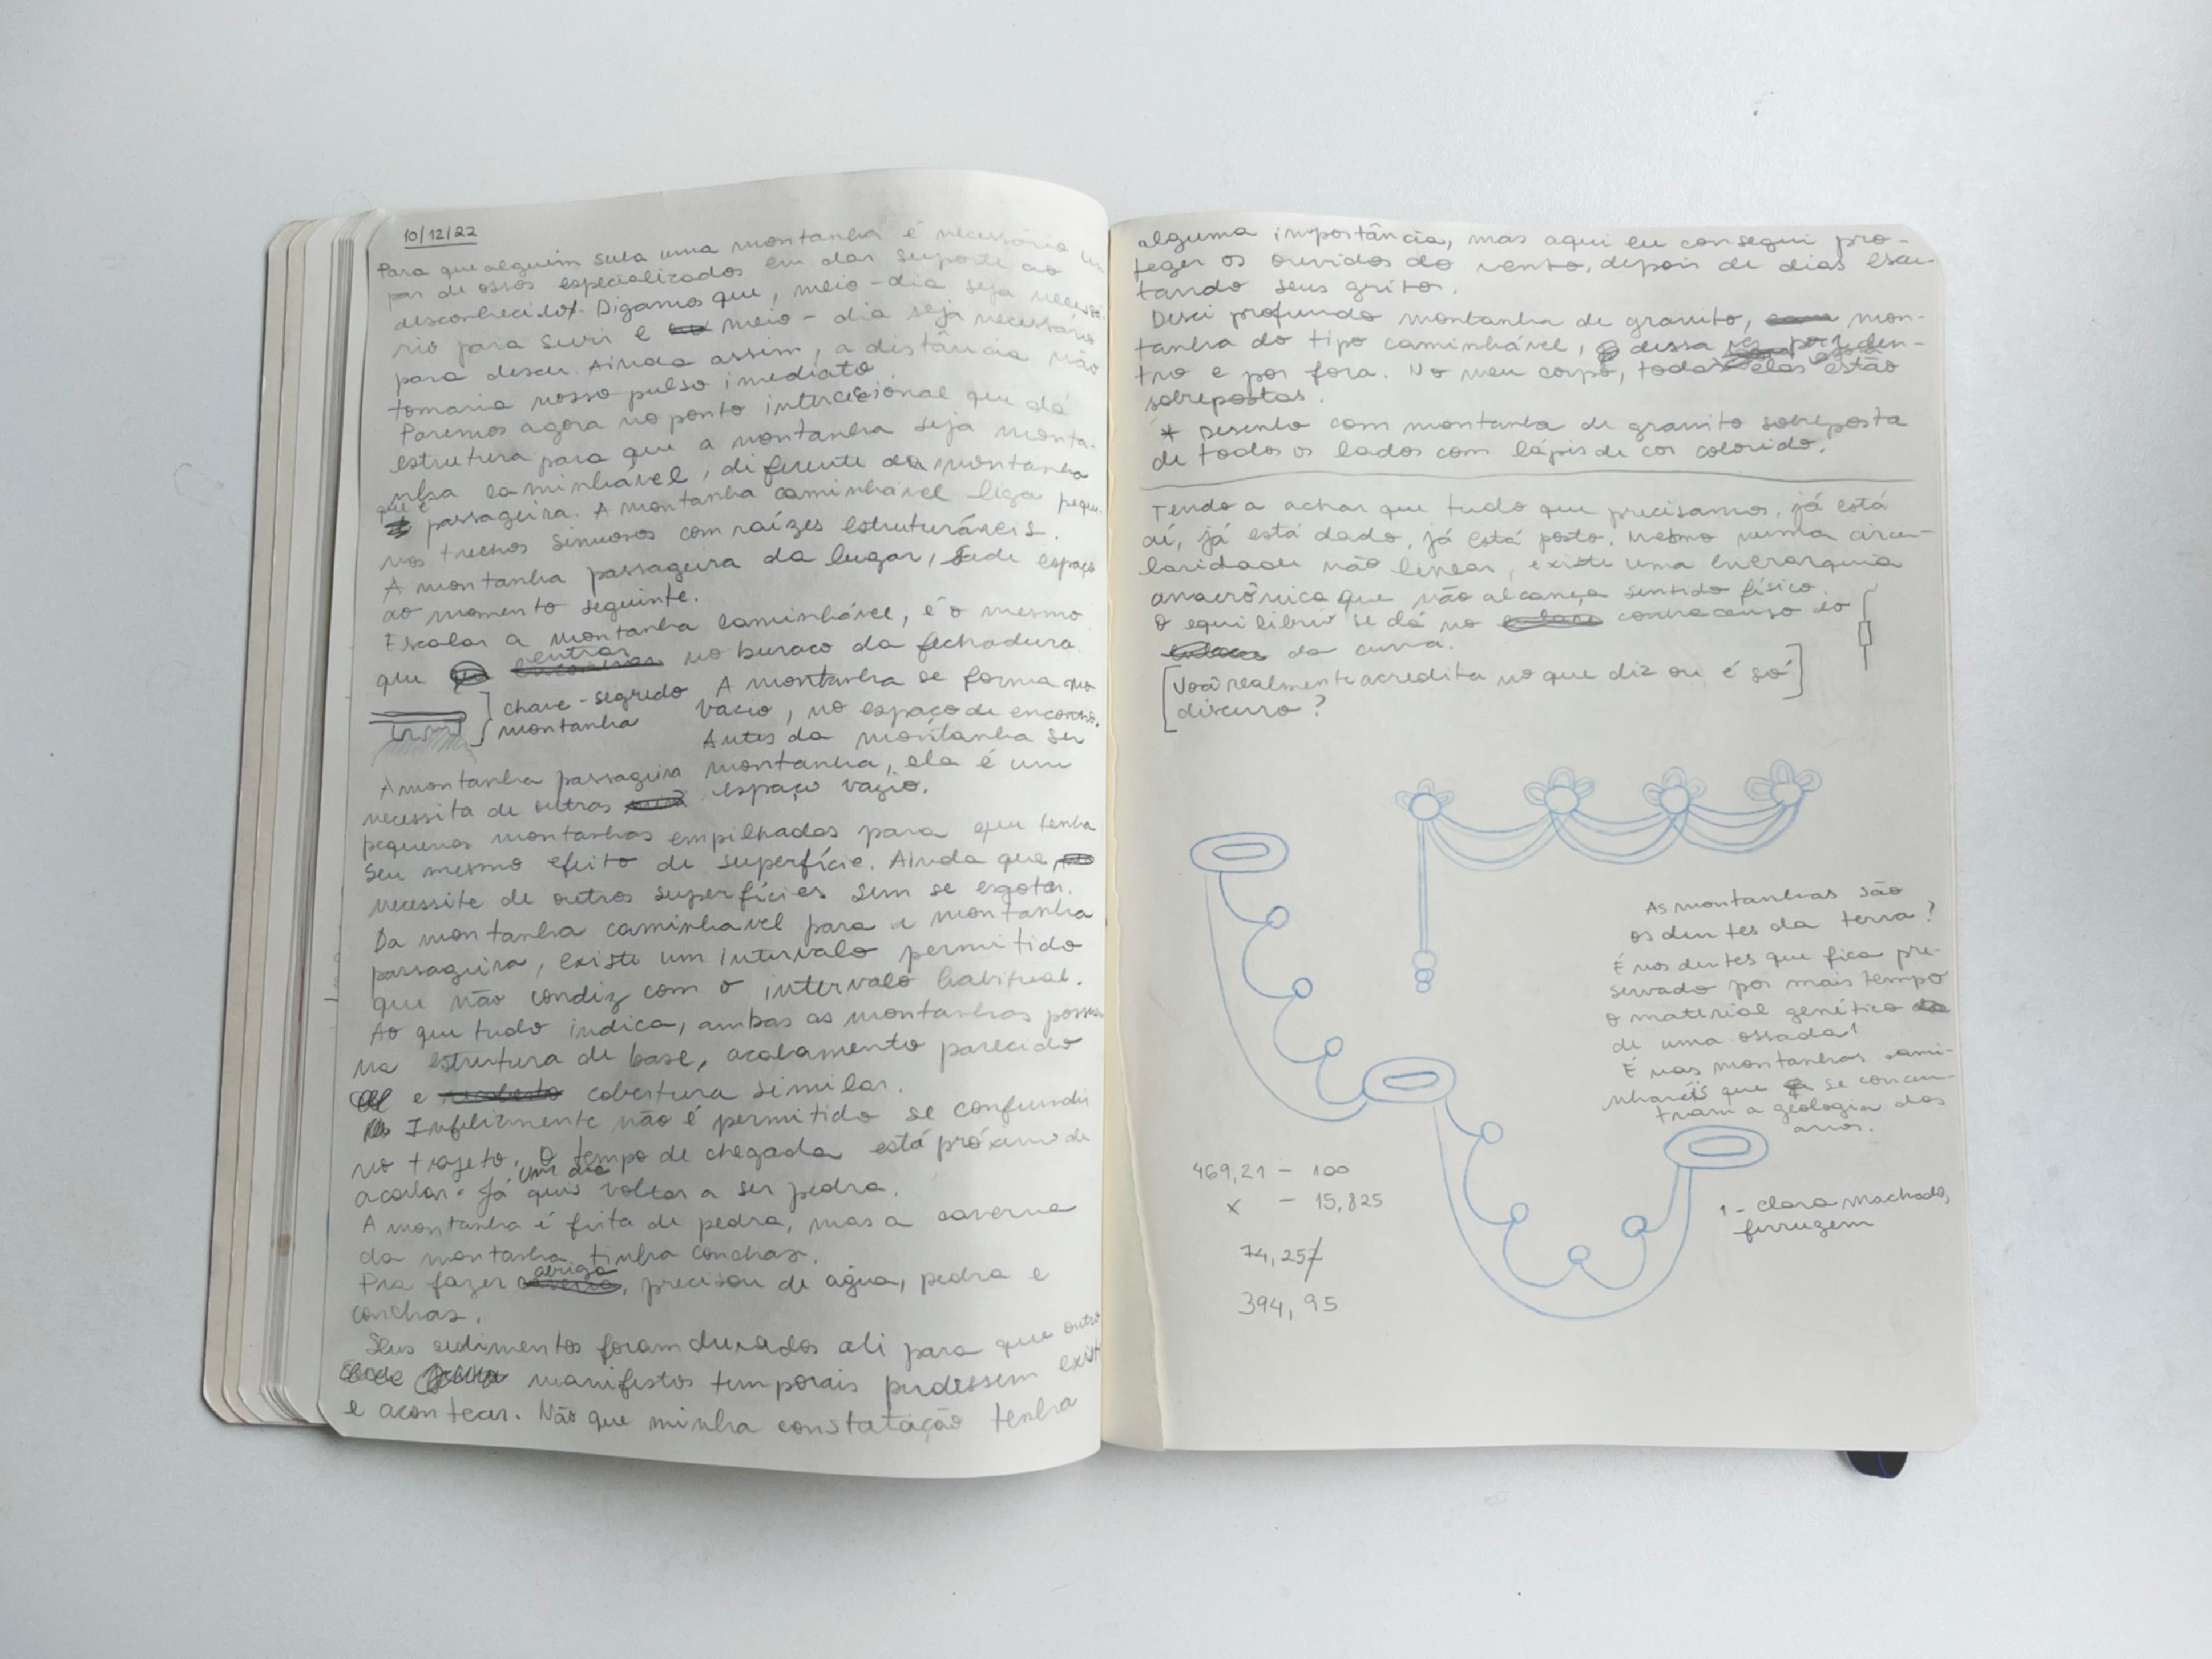 10/12/22
Para que alguém suba uma montanha é necessário um
par de ossos especializados em dar suporte ao
desconhecido. Digamos que, meio-dia seja necessá-
rio para subir e meio-dia seja necessário
para descer. Ainda assim, a distância não
tomaria nosso pulso imediato.
Paremos agora no ponto interccional que dá
estrutura para que a montanha seja monta-
nha caminhável, diferente da montanha
que é passageira. A montanha caminhável liga peque-
nos trechos sinuosos com raízes estruturáveis.
A montanha passageira da lugar, sede espaço
ao momento seguinte.
Escalar a montanha caminhável, é o mesmo
que entrar no buraco da fechadura.
chave-segredo
montanha
A montanha se forma no
vazio, no espaço de encontro.
Antes da montanha ser
montanha, ela é um
espaço vazio.
A montanha passageira
necessita de outras
pequenas montanhas empilhadas para que tenha
seu mesmo efeito de superfície. Ainda que
necessite de outras superfícies sem se esgotar.
Da montanha caminhavel para a montanha
passageira, existe um intervalo permitido
que não condiz com o intervalo habitual.
Ao que tudo indica, ambas as montanhas possuem
na estrutura de base, acabamento parecido
e cobertura similar.
Infelizmente não é permitido se confundir
no trajeto. O tempo de chegada está próximo de
acabar. Já quis um dia voltar a ser pedra.
A montanha é feita de pedra, mas a caverna
da montanha tinha conchas.
Pra fazer abrigo, precisou de água, pedra e
conchas.
Seus sedimentos foram durados ali para que outros
manifestos temporais pudessem existir
e acontecer. Não que minha constatação tenha
alguma importância, mas aqui eu consegui pro-
teger os ouvidos do vento, depois de dias escu-
tando seus gritos.
Desci profundo montanha de granito, mon-
tanha do tipo caminhável, dessa vez por den-
tro e por fora. No meu corpo, todas elas estão
sobrepostas.
* Desenho com montanha de granito sobreposta
de todos os lados com lápis de cor colorido.
Tendo a achar que tudo que precisamos, já está
aí, já está dado, já está posto. Mesmo numa circu-
laridade não linear, existe uma hierarquia
anacrônica que não alcança sentido físico.
O equilíbrio se dá no contracenso do
da curva.
[Você realmente acredita no que diz ou é só
discurso?]
As montanhas são
os dentes da terra?
É nos dentes que fica pre-
servado por mais tempo
o material genético
de uma ossada¹
É nas montanhas cami-
nháveis que se concen-
tram a geologia dos
anos.
469,21 - 100
x - 15,825
74,257
394,95
1 - Clara Machado,
ferrugem